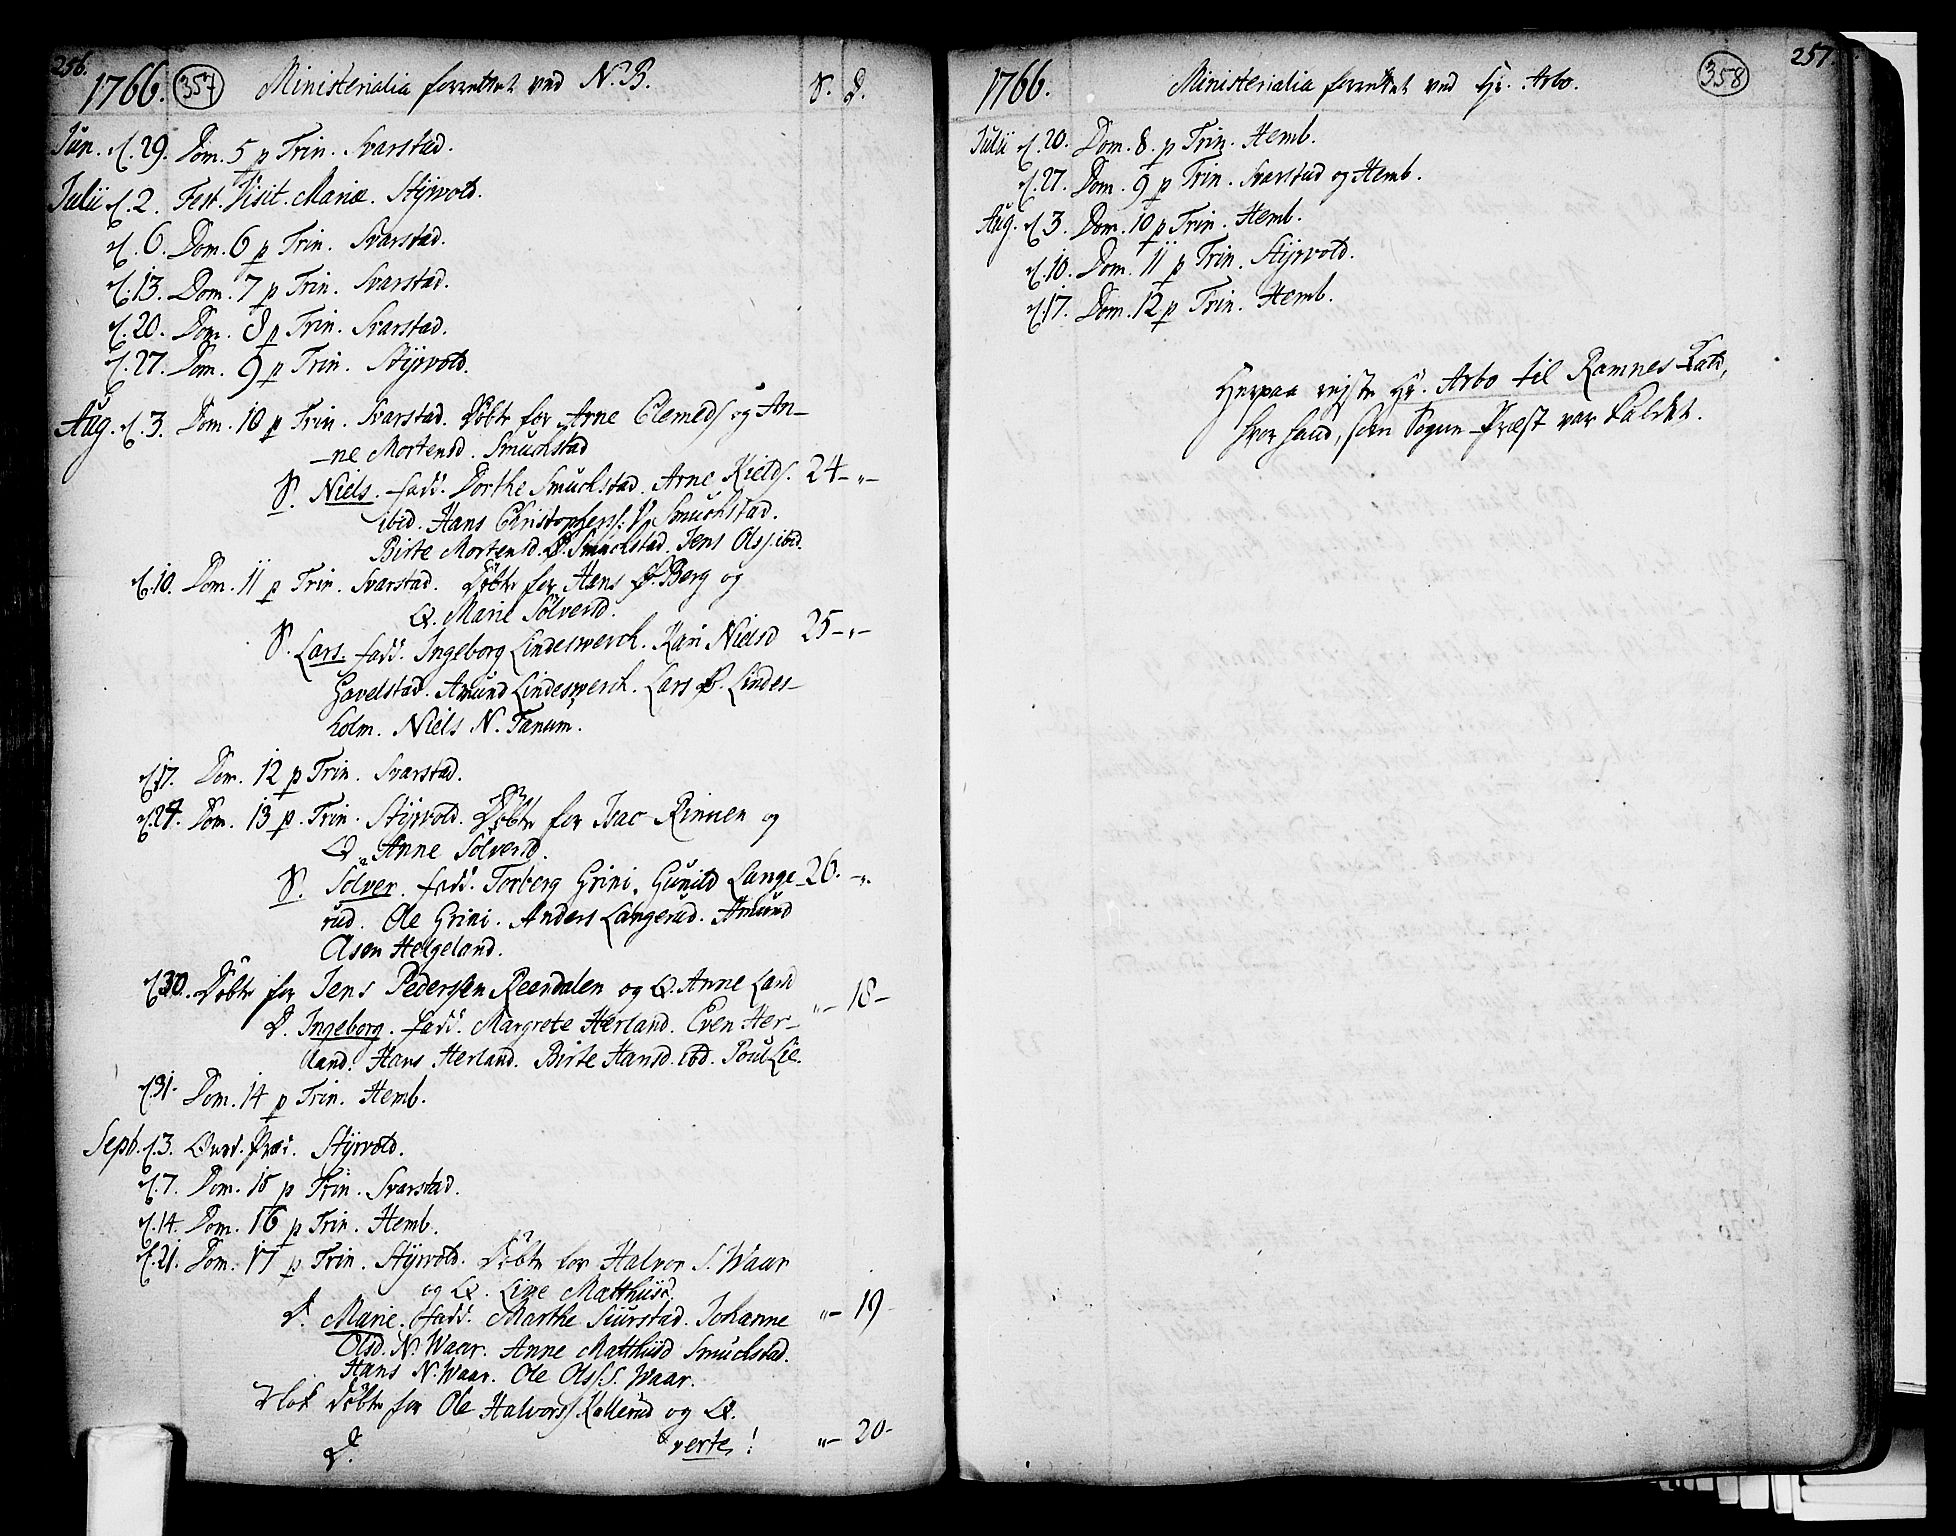 256.
1766. 357 Ministerialia forrettet ved N. B. S. D.
Jun. d. 29. Dom. 5 p Trin. Svarstad.
Julii d. 2. Fest. Visit. Mariæ. Styrvold.
d. 6. Dom. 6 p Trin. Svarstad.
d. 13. Dom. 7 p Trin. Svarstad.
d. 20. Dom. 8 p Trin. Svarstad.
d. 27. Dom. 9 p Trin. Styrvold.
Aug. d. 3. Dom. 10 p Trin. Svarstad. Döbte for Arne Clemeds og An-
-ne Mortensd. Smuchstad
S. Niels. fadd. Dorthe Smuchstad. Arne Kields. 24-"-
ibid. Hans Christophers: Smuchstad.
Birte Mortensd. Ø. Smuchstad. Jens Ols. ibid.
d. 10. Dom. 11 p Trin. Svarstad. Döbte for Hans Ø. Berg og
Q. Marie Sölversd.
S. Lars. fadd. Ingeborg Lindeswerch. Kari Nielsd 25-"-
Gavelstad. Amund Lindeswerch. Lars Ø. Lindes-
holm. Niels N. Tanum.
d. 17. Dom. 12 p Trin. Svarstad.
d. 24. Dom. 13 p. Trin. Styrvold. Döbte for Isac Rinnen og
Q. Anne Sölversd.
S. Sölver. fadd. Torberg Grini. Gunild Lange- 26. -".
rud. Ole Grini. Anders Langerud. Amund
Ason Helgeland.
d. 30. Döbte for Jens Pedersen Reendalen og Q. Anne Larsd
D. Ingeborg. fadd. Margrete Herland. Even Her- "- 18-
land. Hans Herland. Birte Hansd. ibd. Poul Lie.
d. 31. Dom. 14 p Trin. Hemb.
Septb. d. 3. Præd. Styrvold.
d. 7. Dom. 15 p Trin. Svarstad.
d. 14. Dom. 16 p Trin. Hemb.
d. 21. Dom. 17 p Trin. Styrvold. Döbte for Halvor S. Waar
og Q. Live Matthiisd.
D. Marie. fadd. Marthe Siurstad. Johanne "- 19-
Olsd. N. Waar. Anne Matthiisd Smuchstad.
Hans N. Waar. Ole Ols. S. Waar.
Nok döbte for Ole Halvors Kallerud og Q.
D. verte! "- 20-
257.
1766. Ministerialia forrettet ved Hr. Arbo. 358
Julii d. 20. Dom. 8. p Trin. Hemb.
d. 27. Dom. 9 p Trin. Svarstad og Hemb.
Aug. d. 3. Dom. 10 p Trin. Hemb.
d. 10. Dom. 11 p Trin. Styrvold.
d. 17. Dom. 12 p Trin. Hemb.
Herpaa rejste Hr. Arbo til Ramnes Kald,
hvor hand, som Sogne-Præst var kaldet.